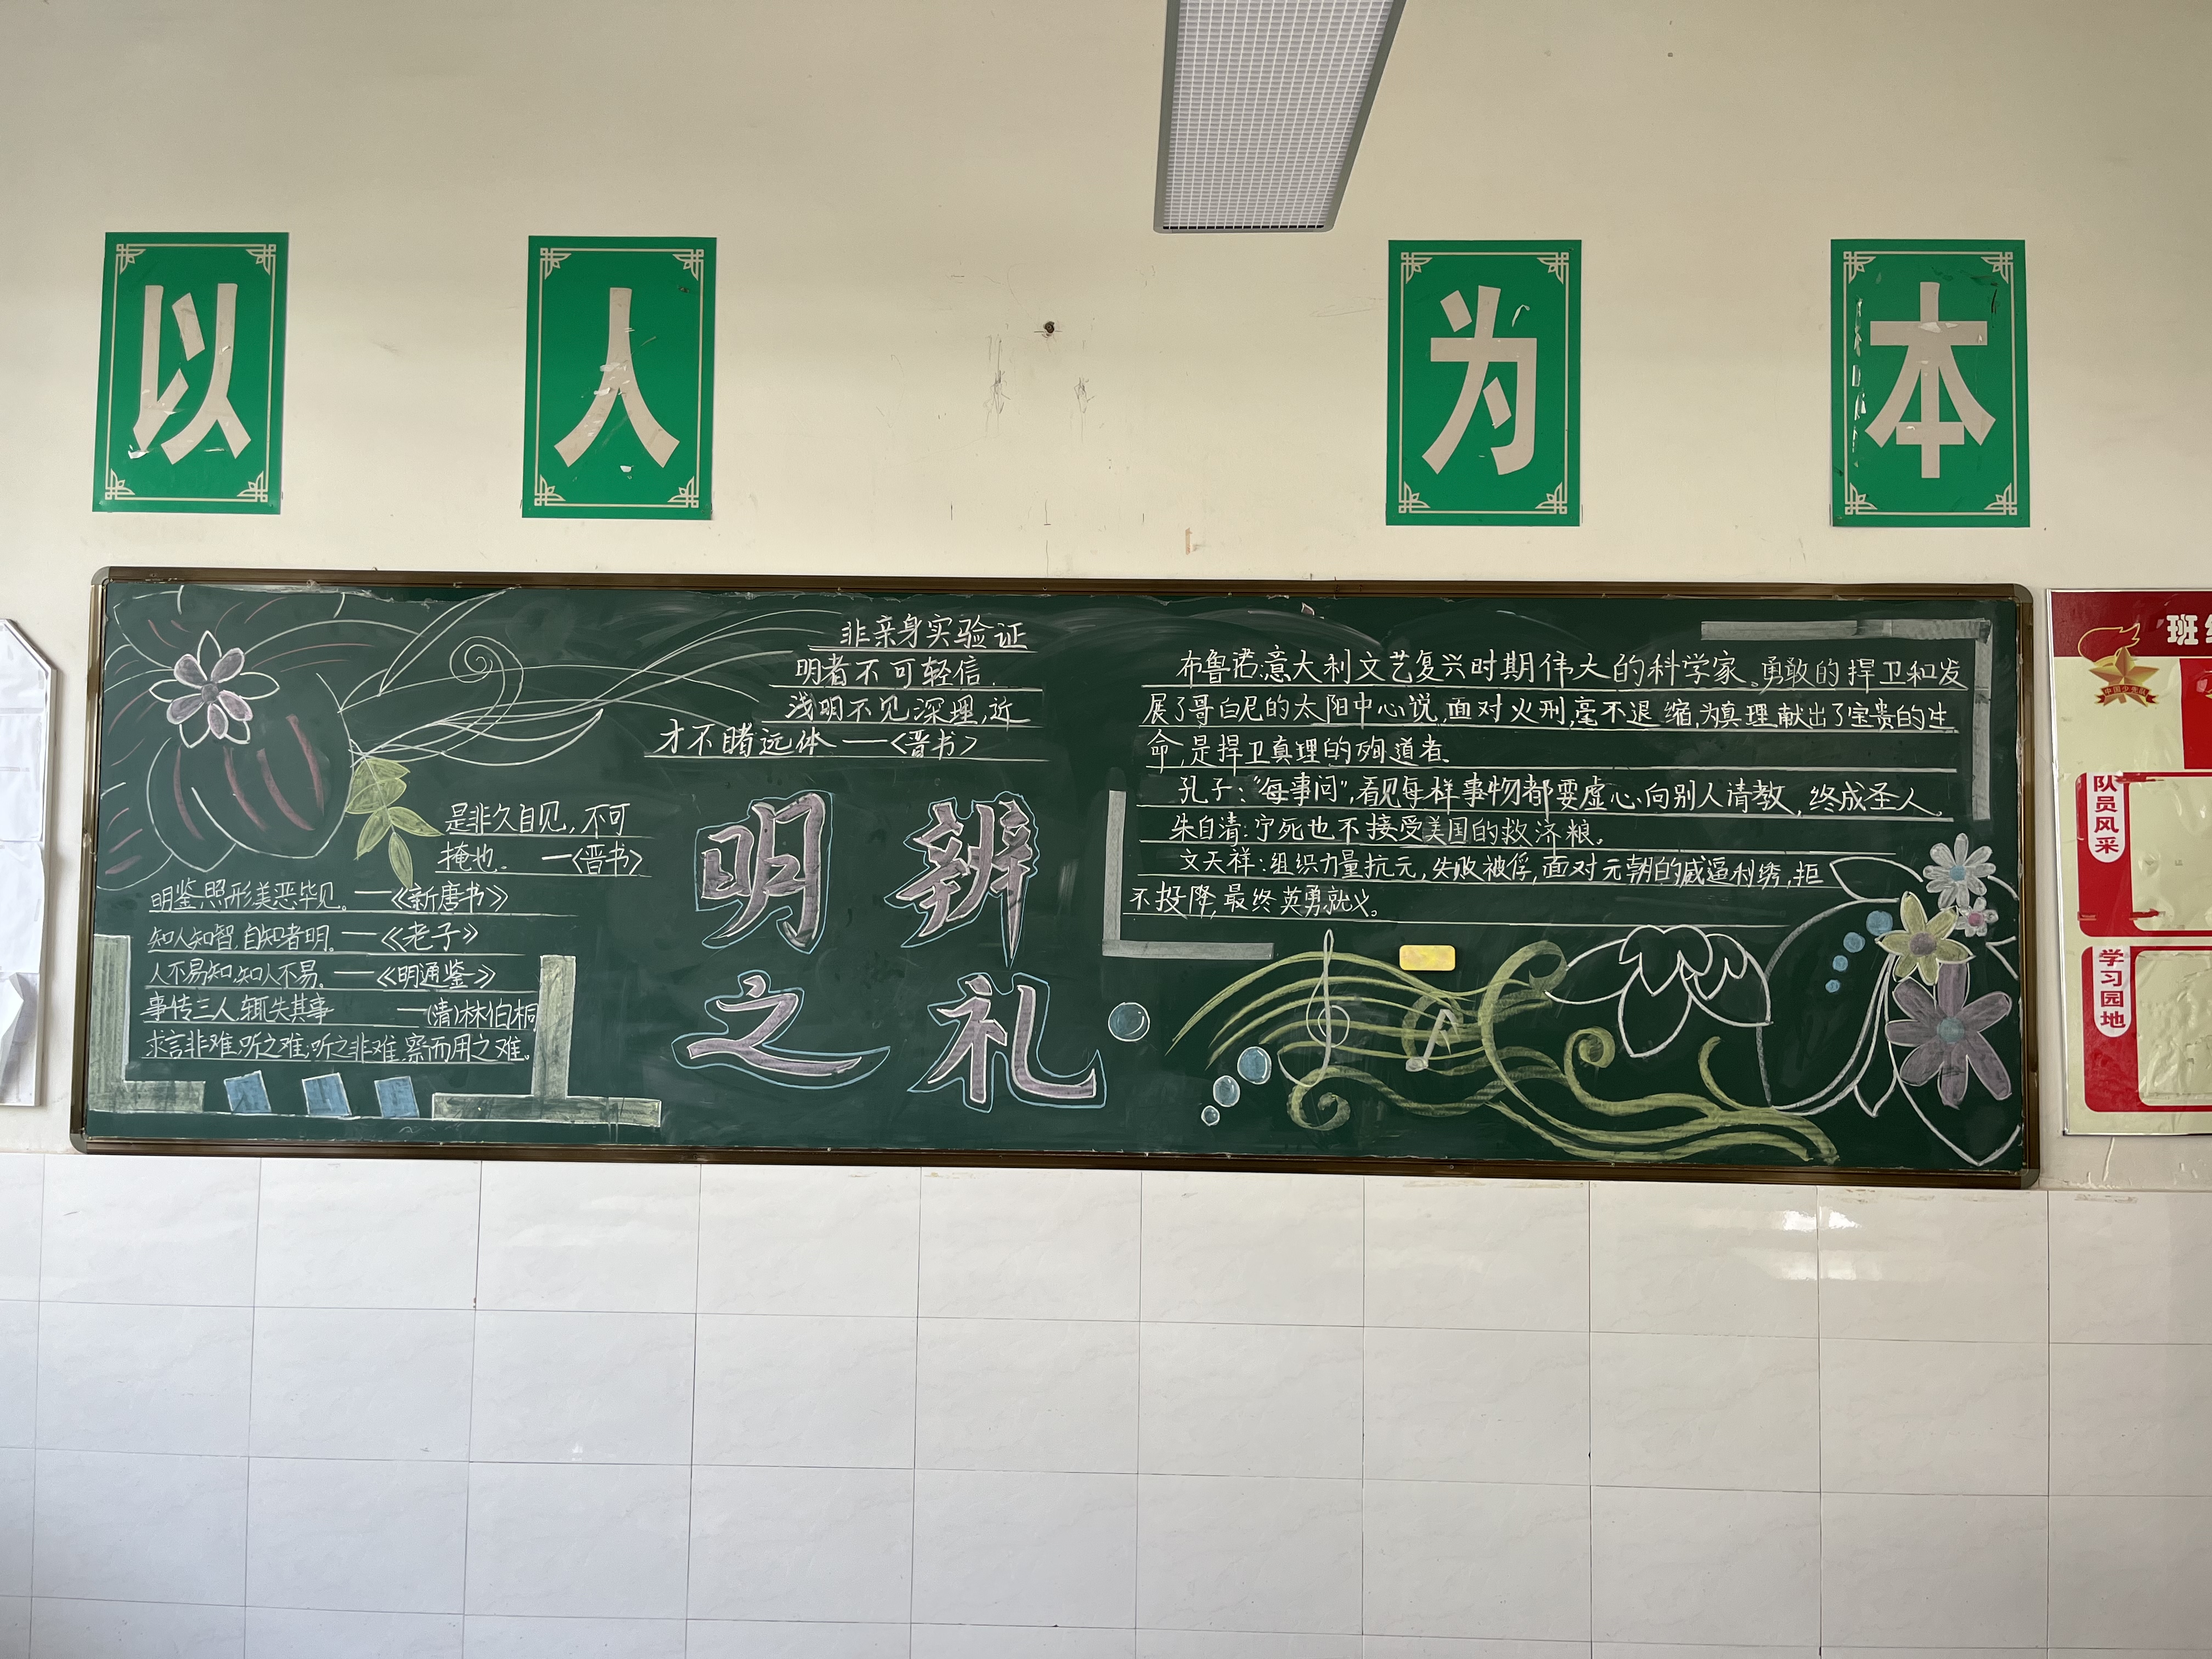 以人为本
非亲身实验证
明者不可轻信.
浅明不见深理,近
才不睹远体—<晋书>
是非久自见,不可
掩也. —<晋书>
明鉴,照形美恶毕见。—《新唐书》
知人知智,自知者明。—《老子》
人不易知,知人不易。—《明通鉴》
事传三人,辄失其事 —(清)林伯桐
求言非难,听之难;听之非难,察而用之难。
明辨
之礼
布鲁诺:意大利文艺复兴时期伟大的科学家。勇敢的捍卫和发
展了哥白尼的太阳中心说,面对火刑,毫不退缩,为真理,献出了宝贵的生
命,是捍卫真理的殉道者.
孔子:“每事问”,看见每样事物都要虚心、向别人请教,终成圣人。
朱自清:宁死也不接受美国的救济粮。
文天祥:组织力量抗元,失败被俘,面对元朝的威逼利绣,拒
不投降,最终英勇就义。
班
中国少先队
队员风采
学习园地